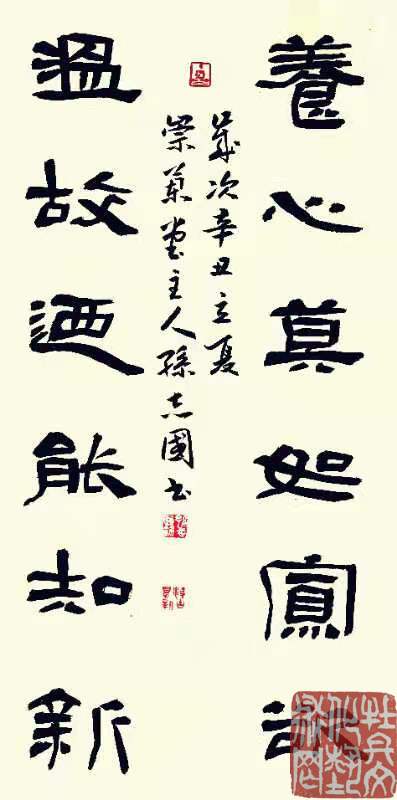 養心莫如寡
歲次辛丑立夏
崇堂主人孫志國書
溫故迺能知新